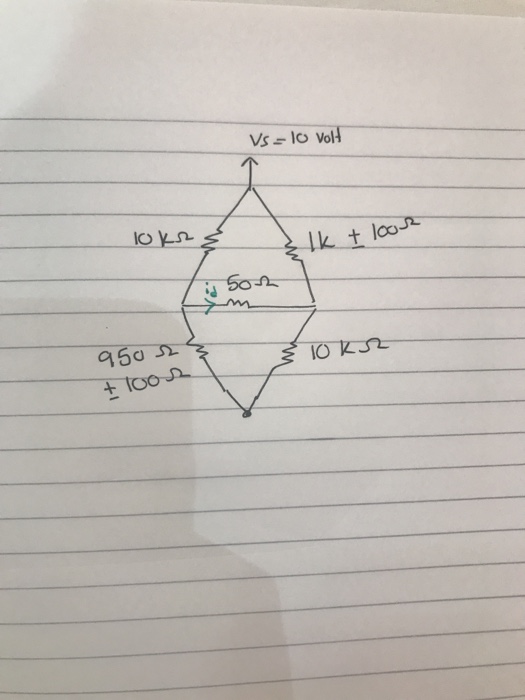 Vs = 10 volt
10 kΩ
1k ± 100Ω
id 50Ω
950 Ω
± 100Ω
10 KΩ